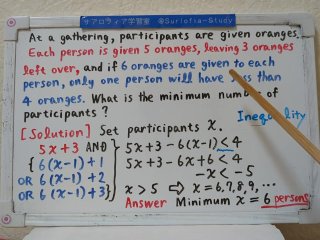 サアロフィア学習室 @Surlofia-Study
At a gathering, participants are given oranges.
Each person is given 5 oranges, leaving 3 oranges
left over, and if 6 oranges are given to each
person, only one person will have less than
4 oranges. What is the minimum number of
participants ?
Inequality
[Solution] Set participants x.
5x+3 AND
{ 6(x-1)+1
OR 6(x-1)+2
OR 6(x-1)+3
5x+3-6(x-1)<4
5x+3-6x+6<4
-x<-5
x>5 ⇨ x=6,7,8,9,…
Answer Minimum x=6 persons